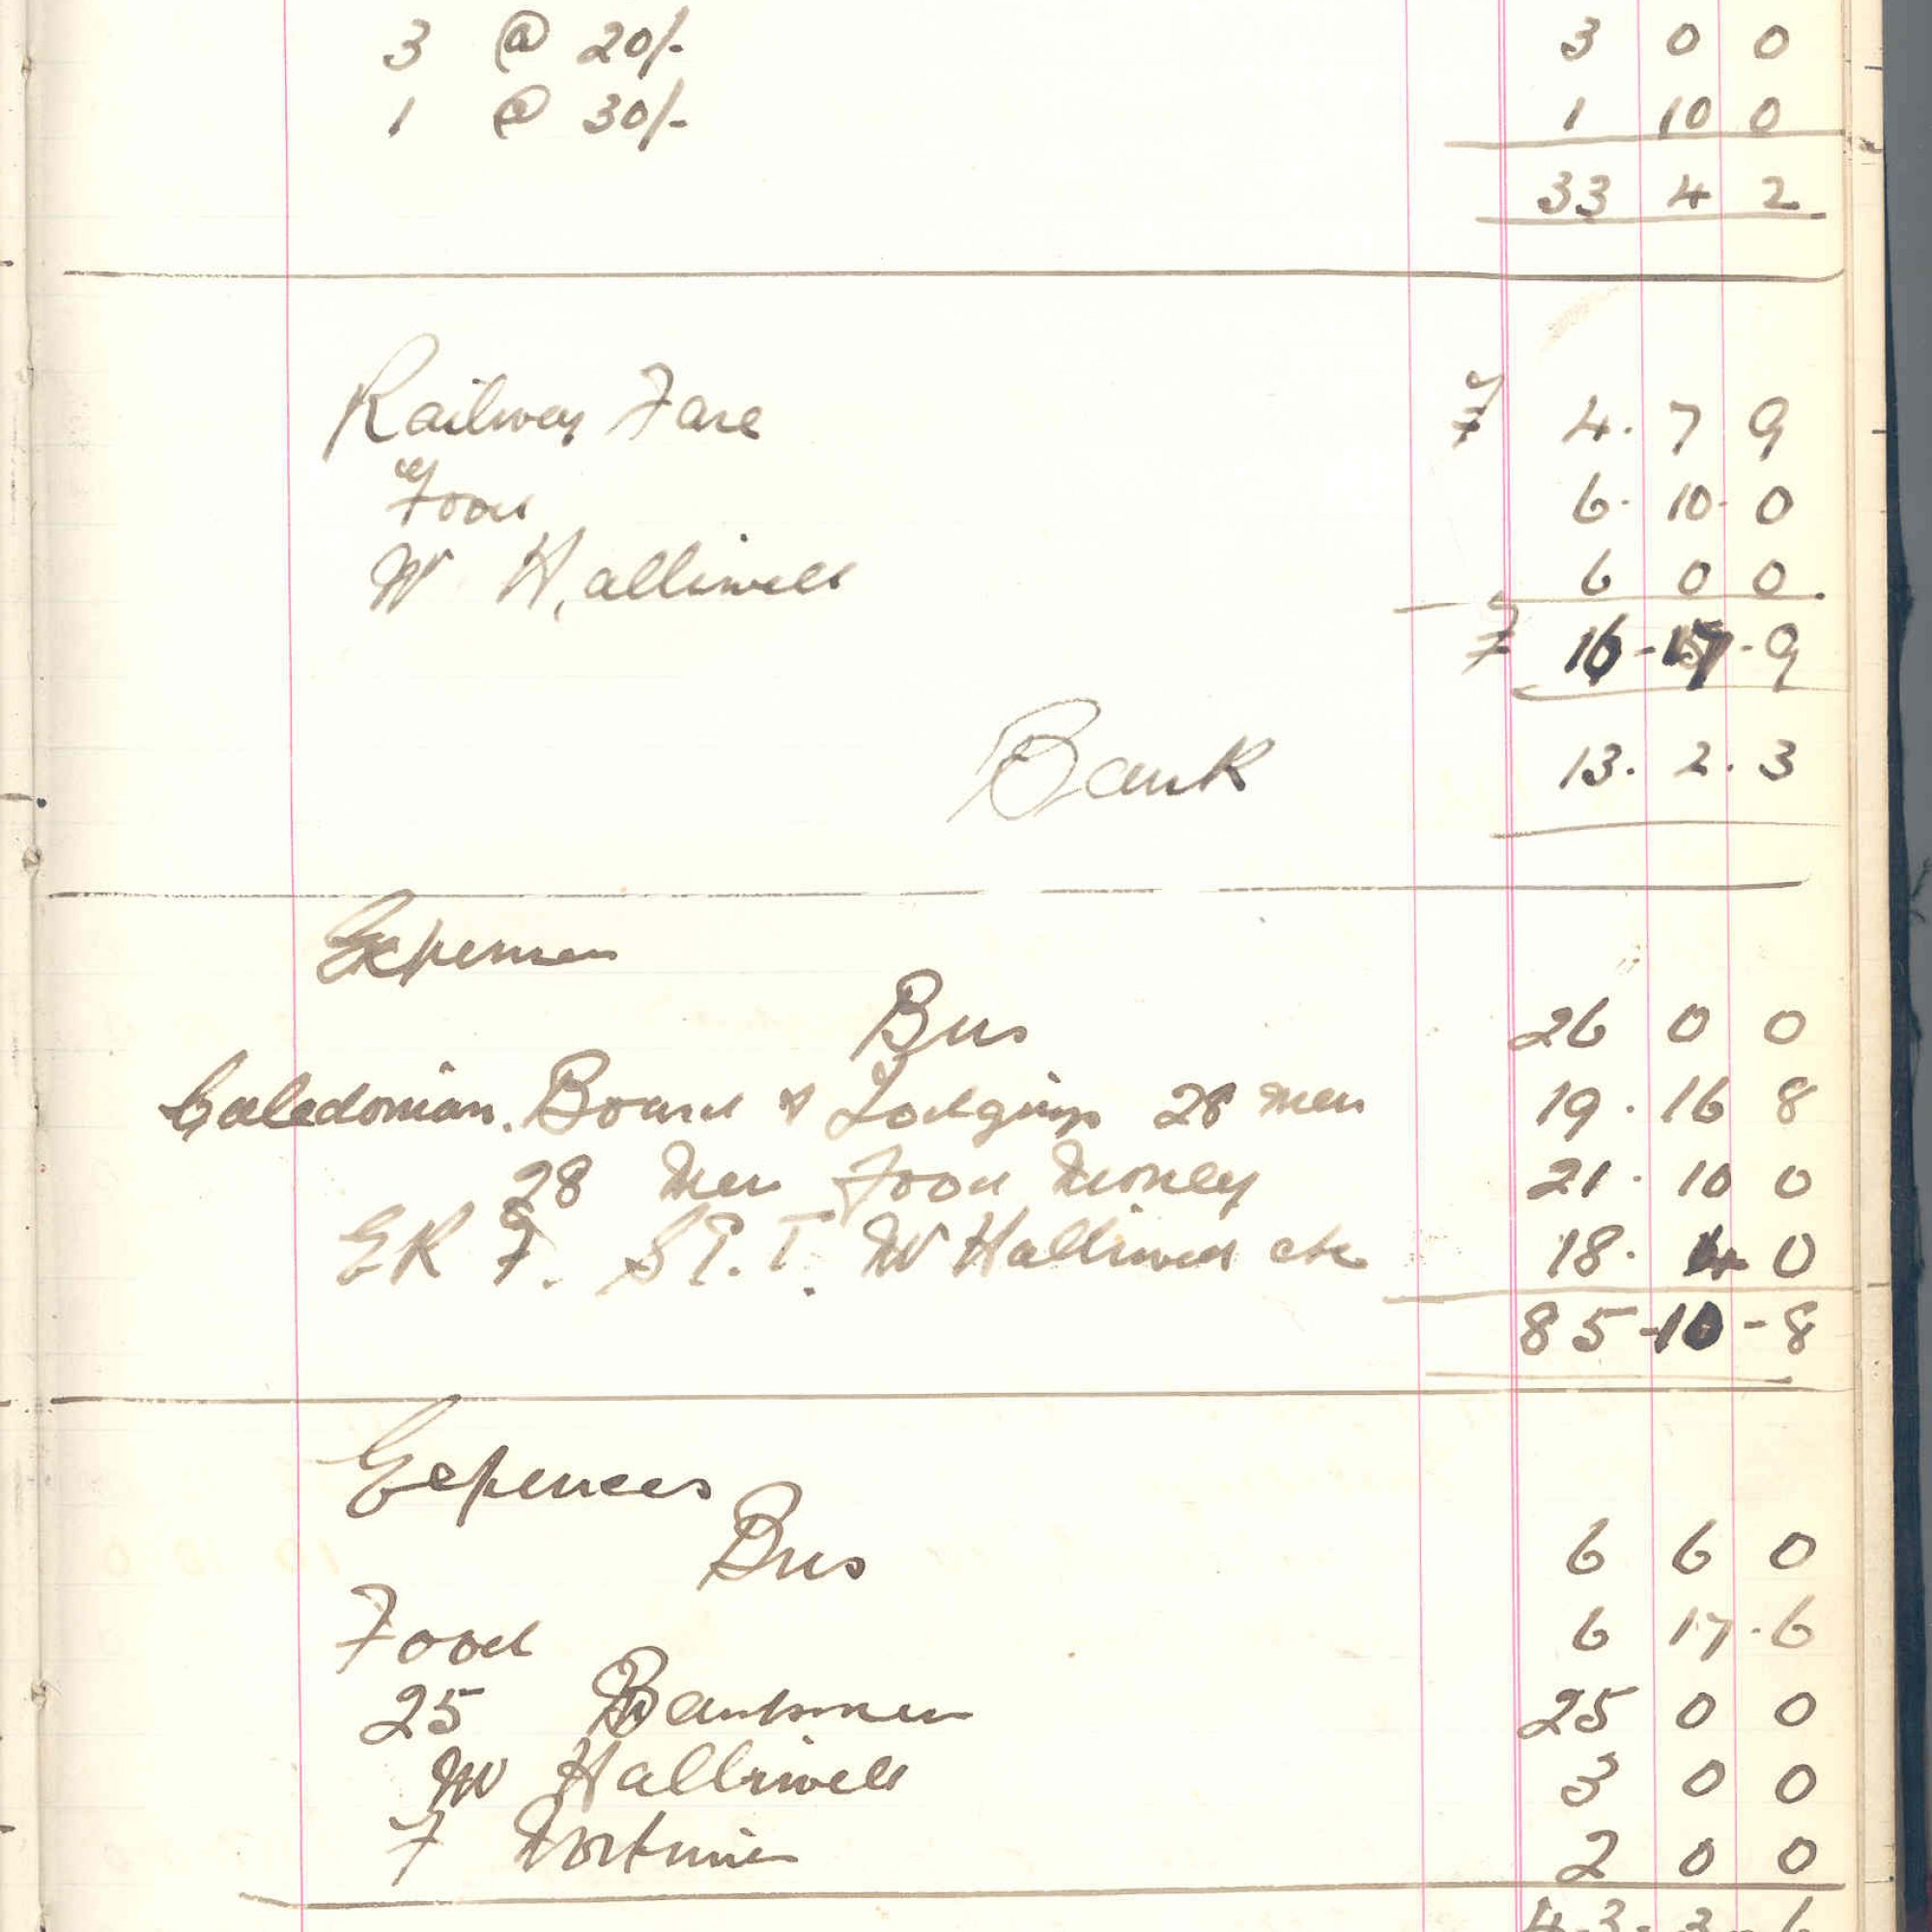 3 @ 20/- 3 0 0
1 @ 30/- 1 10 0
33 4 2
Railway Fare 4. 7 9
Food 6. 10. 0
W Halliwell 6 0 0
16 - 17 - 9
Bank 13. 2. 3
Expenses
Bus 26 0 0
Caledonian. Board & Lodgings 28 men 19. 16 8
28 Men Food Money 21. 10 0
W Halliwell etc 18. 4 0
85 - 10 - 8
Expences
Bus 6 6 0
Food 6 17. 6
25 Bandsmen 25 0 0
W Halliwell 3 0 0
F Mortimer 2 0 0
43. 3. 6